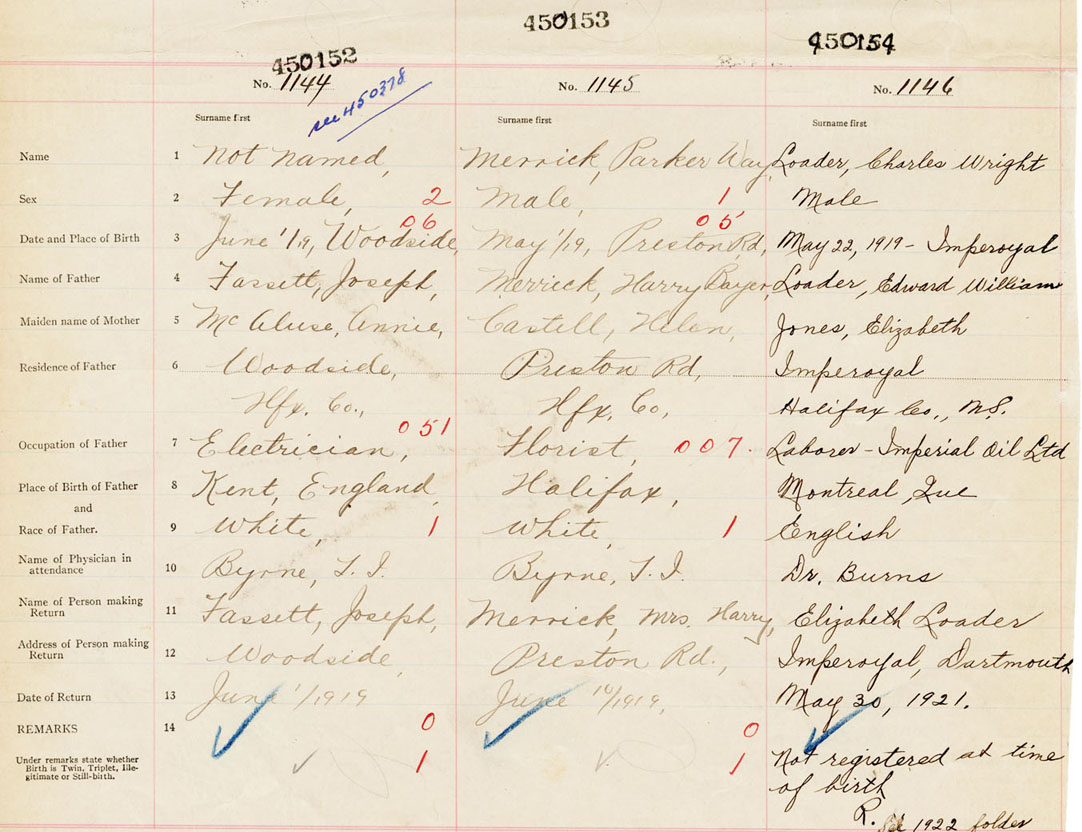 450152
450153
450154
No. 1144
No. 1145
No. 1146
see 450378
Surname first
Surname first
Surname first
Name 1 Not Named, Merrick, Parker Way Loader, Charles Wright
Sex 2 Female, 2 Male, 1 Male
06 05
Date and Place of Birth 3 June 1/19, Woodside, May 1/19, Preston Rd, May 22, 1919 - Imperoyal
Name of Father 4 Fassett, Joseph, Merrick, Harry Loader, Edward William
Maiden name of Mother 5 Annie, Castell, Helen, Jones, Elizabeth
Residence of Father 6 Woodside, Preston Rd, Imperoyal
Hfx. Co., Hfx. Co, Halifax Co., N.S.
051
Occupation of Father 7 Electrician, Florist, 007. Laborer - Imperial Oil Ltd
Place of Birth of Father 8 Kent, England, Halifax, Montreal, Que
and
Race of Father. 9 White, 1 White, 1 English
Name of Physician in
attendance 10 Byrne, T. I. Byrne, T. I. Dr. Burns
Name of Person making
Return 11 Fassett, Joseph, Merrick, Mrs. Harry, Elizabeth Loader
Address of Person making
Return 12 Woodside, Preston Rd., Imperoyal, Dartmouth
Date of Return 13 June 1/1919 June 10/1919, May 30, 1921.
REMARKS 14 0 0
Under remarks state whether
Birth is Twin, Triplet, Ille-
gitimate or Still-birth. 1 1 Not registered at time
of birth
R. 1922 folder